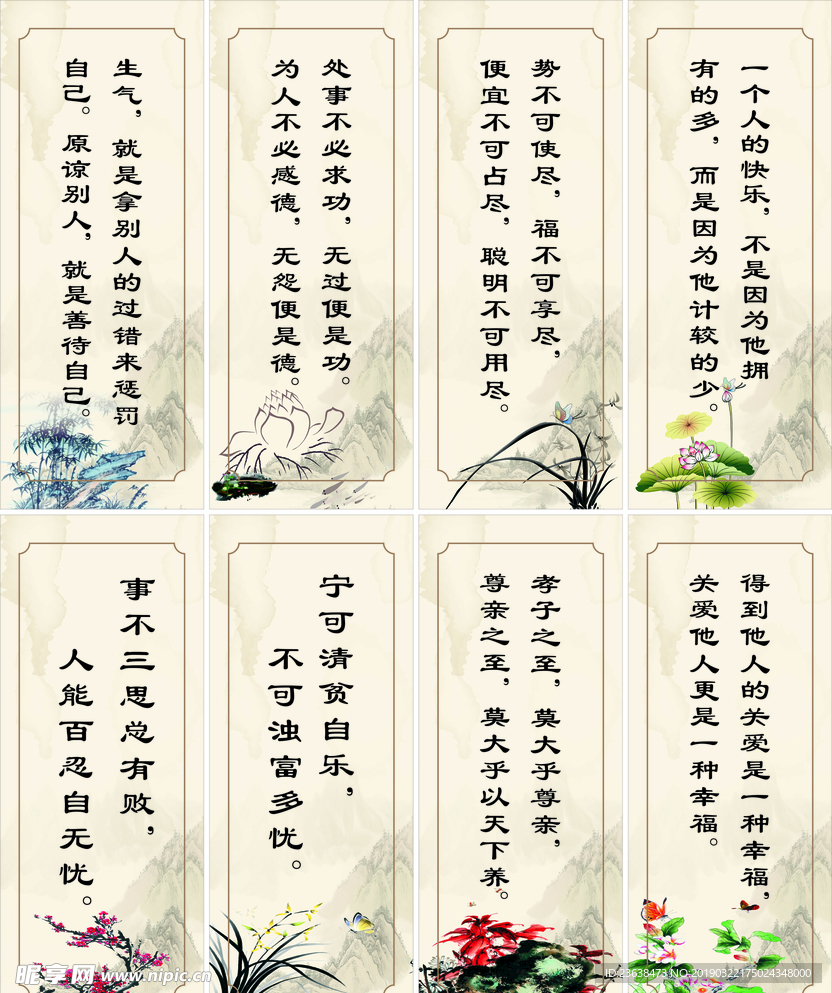 生气，就是拿别人的过错来惩罚
自己。原谅别人，就是善待自己。
处事不必求功，无过便是功。
为人不必感德，无怨便是德。
势不可使尽，福不可享尽，
便宜不可占尽，聪明不可用尽。
一个人的快乐，不是因为他拥
有的多，而是因为他计较的少。
事不三思总有败，
人能百忍自无忧。
宁可清贫自乐，
不可浊富多忧。
孝子之至，莫大乎尊亲，
尊亲之至，莫大乎以天下养。
得到他人的关爱是一种幸福，
关爱他人更是一种幸福。
昵享网 www.nipic.cn
ID:23638473 NO:20190322175024348000